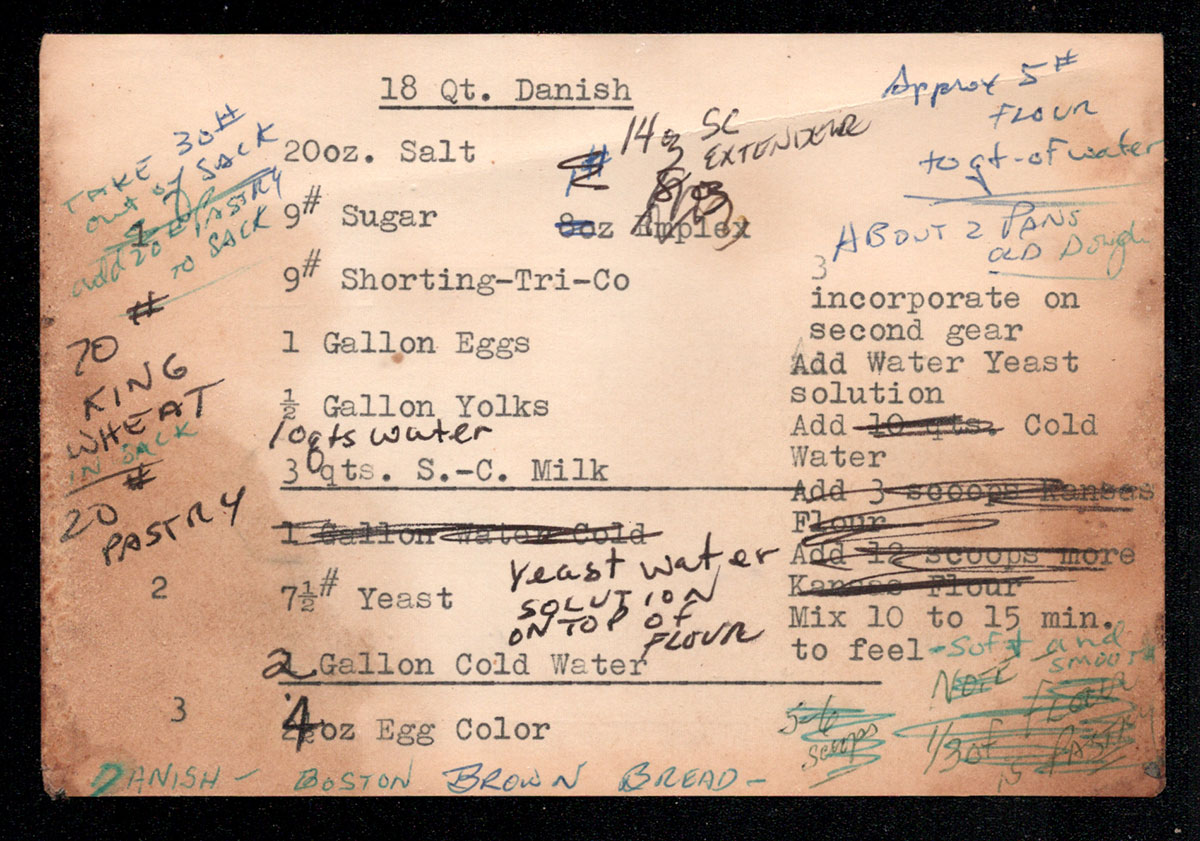 18 Qt. Danish
Approx 5#
FLOUR
to qt-of water
ABOUT 2 PANS
OLD Dough
TAKE 30#
out of SACK
add 20# PASTRY
to SACK
1
20oz. Salt
14oz SC
EXTENDER
9# Sugar
1#
8oz
8oz Emplex
9# Shorting-Tri-Co
1 Gallon Eggs
½ Gallon Yolks
10 qts water
3 qts. S.-C. Milk
1 Gallon Water Cold
70#
KING
WHEAT
IN SACK
20#
PASTRY
2
7½# Yeast
Yeast water
SOLUTION
ON TOP OF
FLOUR
2 Gallon Cold Water
3
4oz Egg Color
3
incorporate on
second gear
Add Water Yeast
solution
Add 10 qts. Cold
Water
Add 3 scoops Kansas
Flour
Add 12 scoops more
Kansas Flour
Mix 10 to 15 min.
to feel - Soft and
smooth
NOTE
FLOUR
1/3 of
is PASTRY
5-6
scoops
DANISH - BOSTON BROWN BREAD -